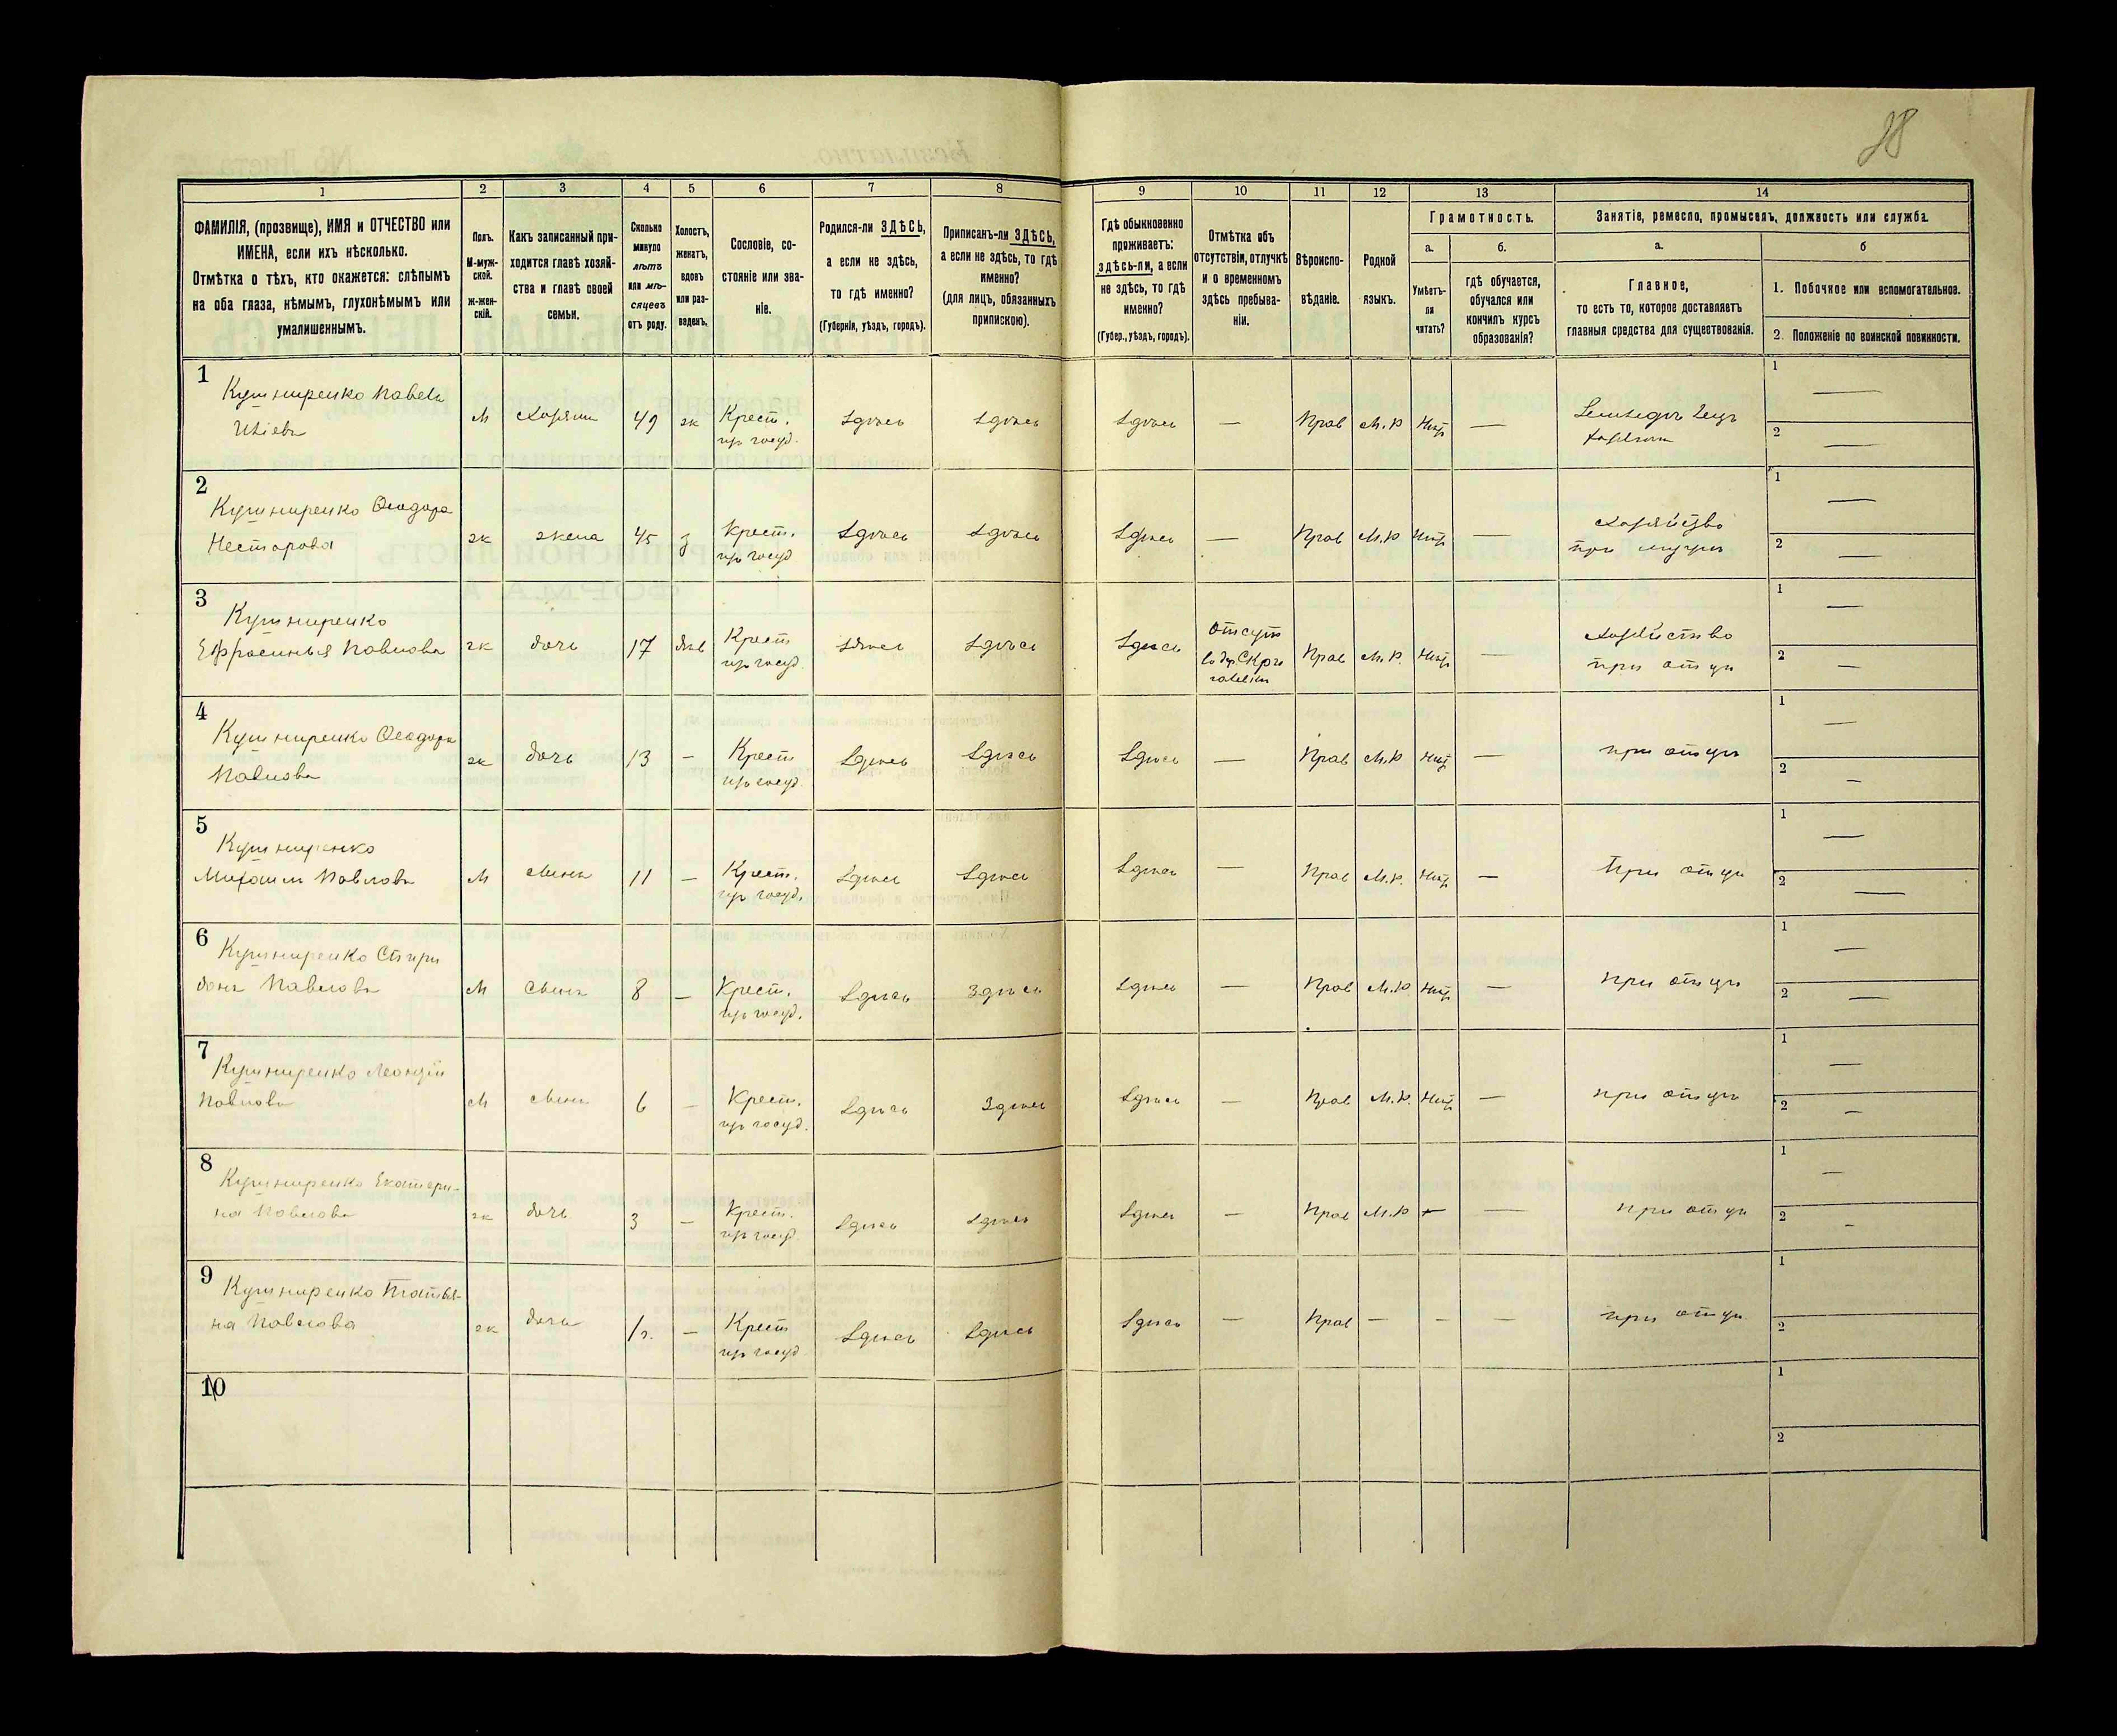 38
1 2 3 4 5 6 7 8 9 10 11 12 13 14
ФАМИЛІЯ, (прозвище), ИМЯ и ОТЧЕСТВО или
ИМЕНА, если ихъ нѣсколько.
Отмѣтка о тѣхъ, кто окажется: слѣпымъ
на оба глаза, нѣмымъ, глухонѣмымъ или
умалишеннымъ.
Полъ.
М-муж-
ской.
ж-жен-
скій.
Какъ записанный при-
ходится главѣ хозяй-
ства и главѣ своей
семьи.
Сколько
минуло
лѣтъ
или мѣ-
сяцевъ
отъ роду.
Холостъ,
женатъ,
вдовъ
или раз-
веденъ.
Сословіе, со-
стояніе или зва-
ніе.
Родился-ли ЗДѢСЬ,
а если не здѣсь,
то гдѣ именно?
(Губернія, уѣздъ, городъ).
Приписанъ-ли ЗДѢСЬ,
а если не здѣсь, то гдѣ
именно?
(для лицъ, обязанныхъ
припискою).
Гдѣ обыкновенно
проживаетъ:
здѣсь-ли, а если
не здѣсь, то гдѣ
именно?
(Губер., уѣздъ, городъ).
Отмѣтка объ
отсутствіи, отлучкѣ
и о временномъ
здѣсь пребыва-
ніи.
Вѣроиспо-
вѣданіе.
Родной
языкъ.
Грамотность.
а.
Умѣетъ-
ли
читать?
б.
гдѣ обучается,
обучался или
кончилъ курсъ
образованія?
Занятіе, ремесло, промыселъ, должность или служба.
а.
Главное,
то есть то, которое доставляетъ
главныя средства для существованія.
б
1. Побочное или вспомогательное.
2. Положеніе по воинской повинности.
1
Кушниренко Павелъ
М хозяинъ 49 ж Крест. здѣсь здѣсь здѣсь — Прав М.Р Нѣтъ — Земледѣлецъ
из госуд. хозяинъ
1 —
2 —
2
Кушниренко Ѳеодора
Несторова ж жена 45 з Крест. здѣсь здѣсь здѣсь — Прав М.Р Нѣтъ — хозяйство
из госуд при мужѣ
1 —
2 —
3
Кушниренко
Ефросинья Павлова ж дочь 17 дѣв Крест здѣсь здѣсь здѣсь отсут Прав М.Р. Нѣтъ — хозяйство
из госуд. при отцѣ
1 —
2 —
4
Кушниренко Ѳеодора
Павлова ж дочь 13 — Крест здѣсь здѣсь здѣсь — Прав М.Р Нѣтъ — при отцѣ
из госуд
1 —
2 —
5
Кушниренко
Павловъ М сынъ 11 — Крест. здѣсь здѣсь здѣсь — Прав М.Р. Нѣтъ — При отцѣ
из госуд.
1 —
2 —
6
Кушниренко Спири
донъ Павловъ М сынъ 8 — Крест. здѣсь здѣсь здѣсь — Прав М.Р Нѣтъ — при отцѣ
из госуд.
1 —
2 —
7
Кушниренко Леонтій
Павловъ М сынъ 6 — Крест. здѣсь здѣсь здѣсь — Прав М.Р. Нѣтъ — при отцѣ
из госуд.
1 —
2 —
8
Кушниренко Екатери-
на Павлова ж дочь 3 — Крест. здѣсь здѣсь здѣсь — Прав М.Р — — при отцѣ
из госуд
1 —
2 —
9
Кушниренко Татья-
на Павлова ж дочь — Крест здѣсь здѣсь здѣсь — Прав — — — при отцѣ
из госуд
1
2
10
1
2